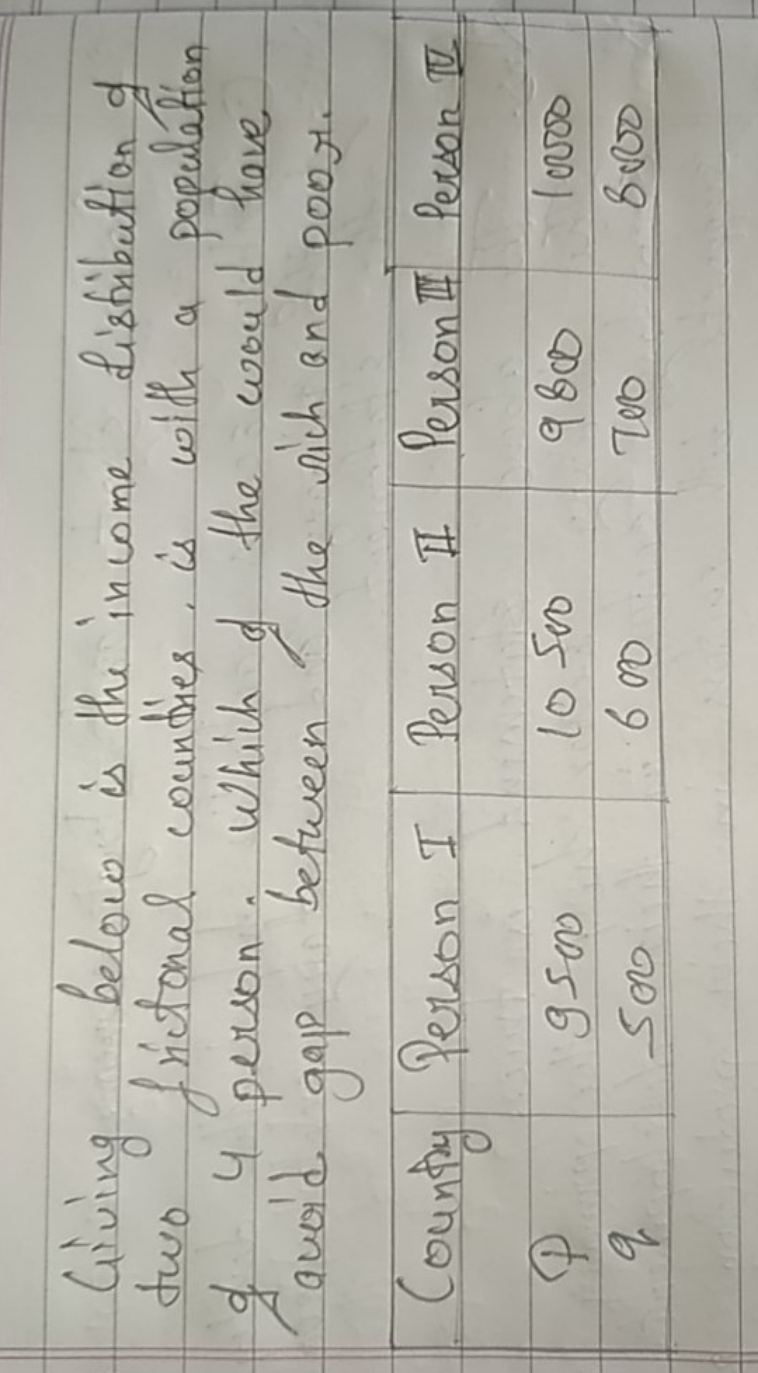 Giving below is the income distribution of
two frictonal countries. is with a population
of 4 person. which of the would have
avoid gap between the rich and poor.
Country Person I Person II Person III Person IV
P 9500 10500 9800 10000
q 500 600 700 8000